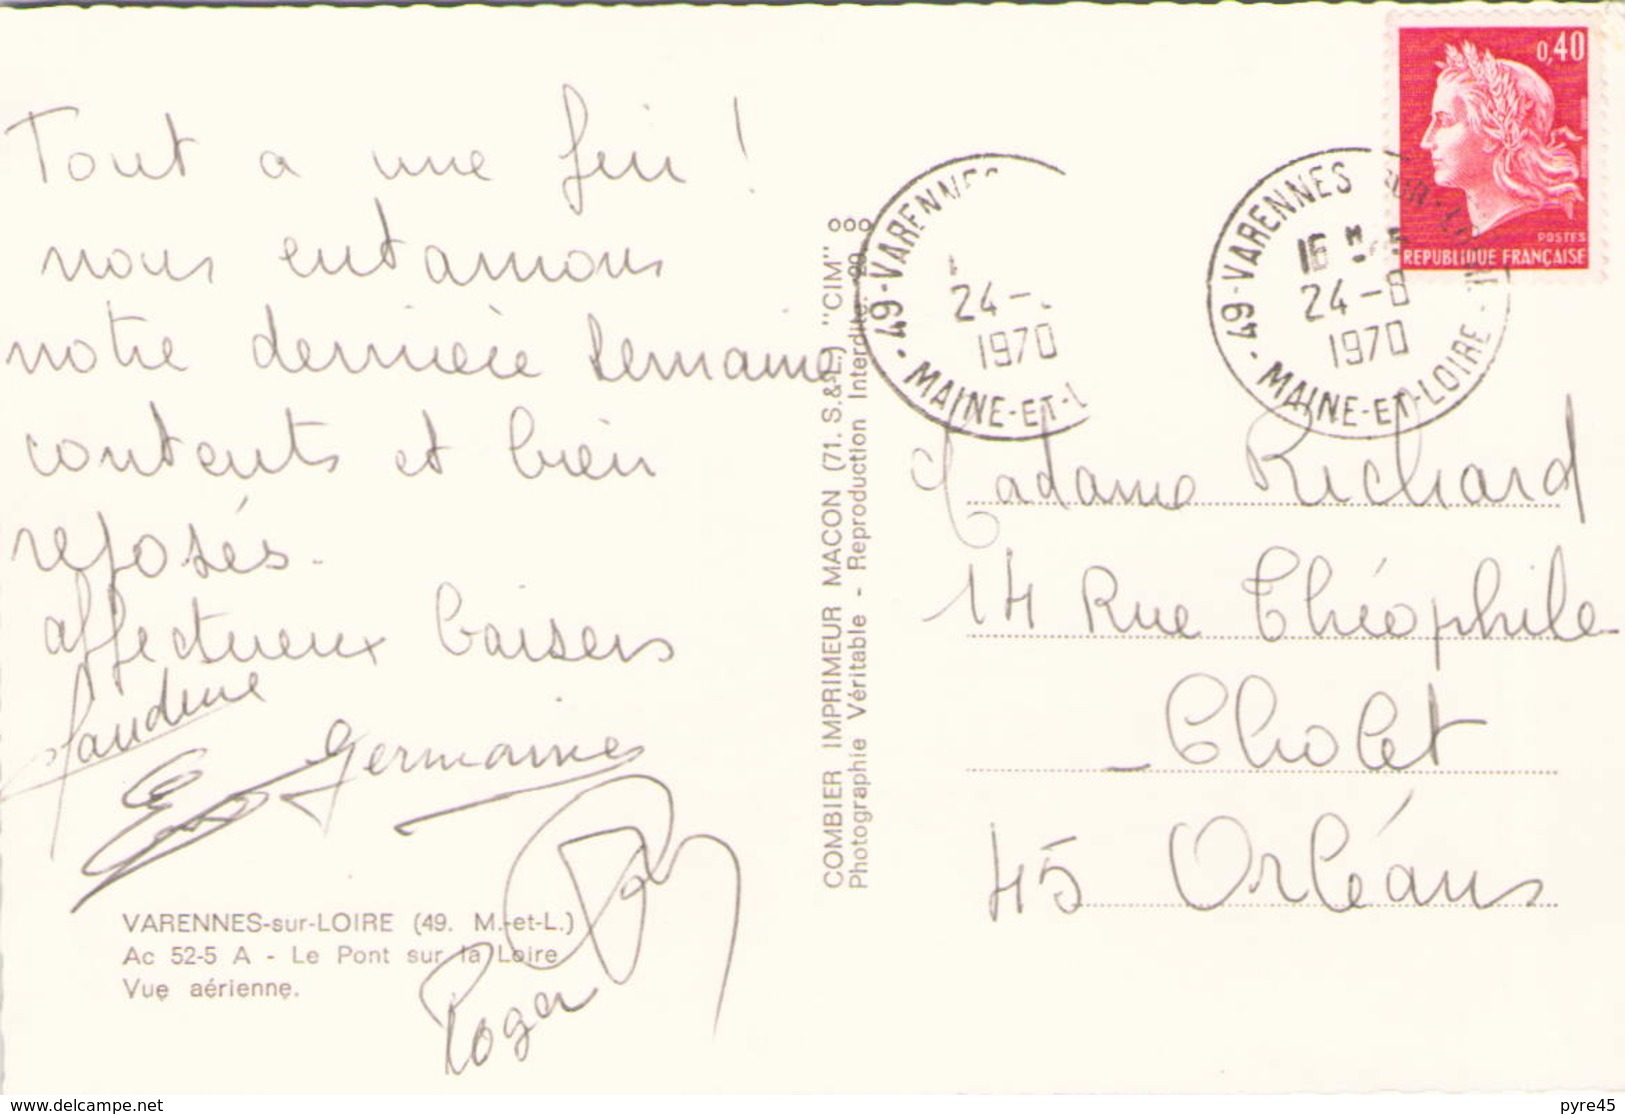 Tout a une fin !
nous entamons
notre dernière semaine
contents et bien
reposés.
affectueux baisers
Germaine
Roger
VARENNES-sur-LOIRE (49. M.-et-L.)
Ac 52-5 A - Le Pont sur la Loire
Vue aérienne.
COMBIER IMPRIMEUR MACON (71. S.&L.) "CIM"
Photographie Véritable - Reproduction Interdite.
49-VARENNES
24-
1970
MAINE-ET-L
49-VARENNES SUR-LOIRE
16 H
24-8
1970
MAINE-ET-LOIRE
0,40
POSTES
REPUBLIQUE FRANÇAISE
Madame Richard
14 Rue Théophile
Cholet
45 Orléans
www.delcampe.net
pyre45